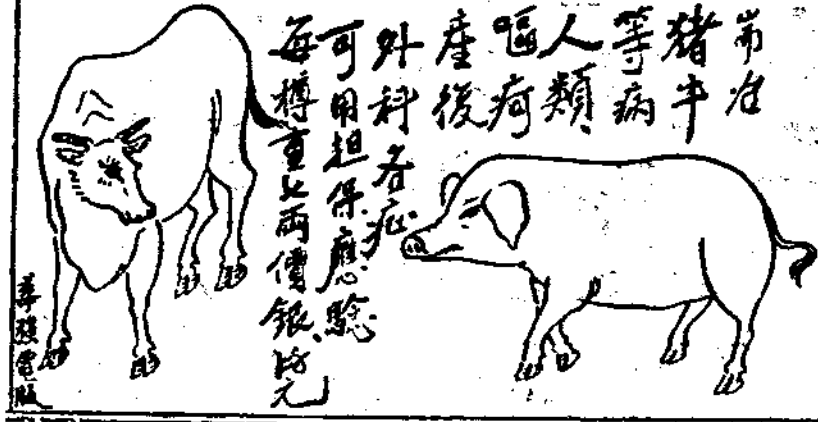 耑治
猪牛
等病
人類
嘔疴
產後
外科各症
可用担保應驗
每樽重七兩價銀
華強電版